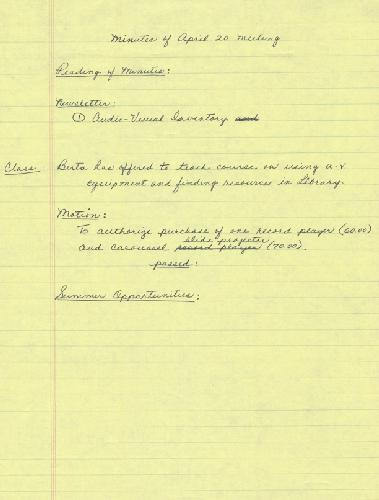 Minutes of April 20 meeting
Reading of Minutes:
Newsletter:
① Audio-Visual Inventory and
Class. Berta has offered to teach course on using a-v
equipment and finding resources in Library.
Motion:
To authorize purchase of one record player (60.00)
slide projector
and carousel record player (70.00).
passed.
Summer Opportunities: